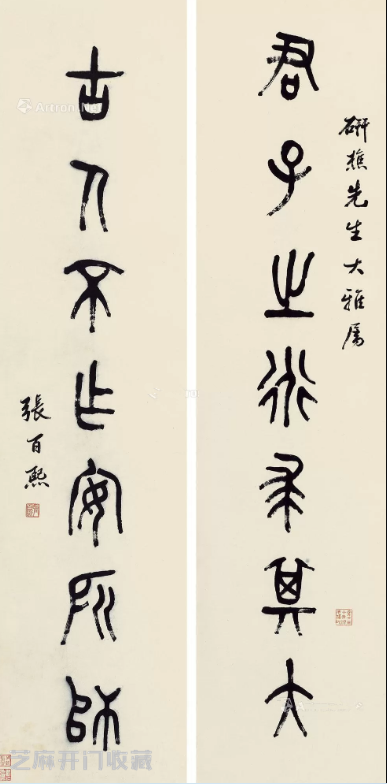 研樵先生大雅屬
君子之行求其大
古人不作安所師
張百熙
Artron.Net
芝麻开门收藏